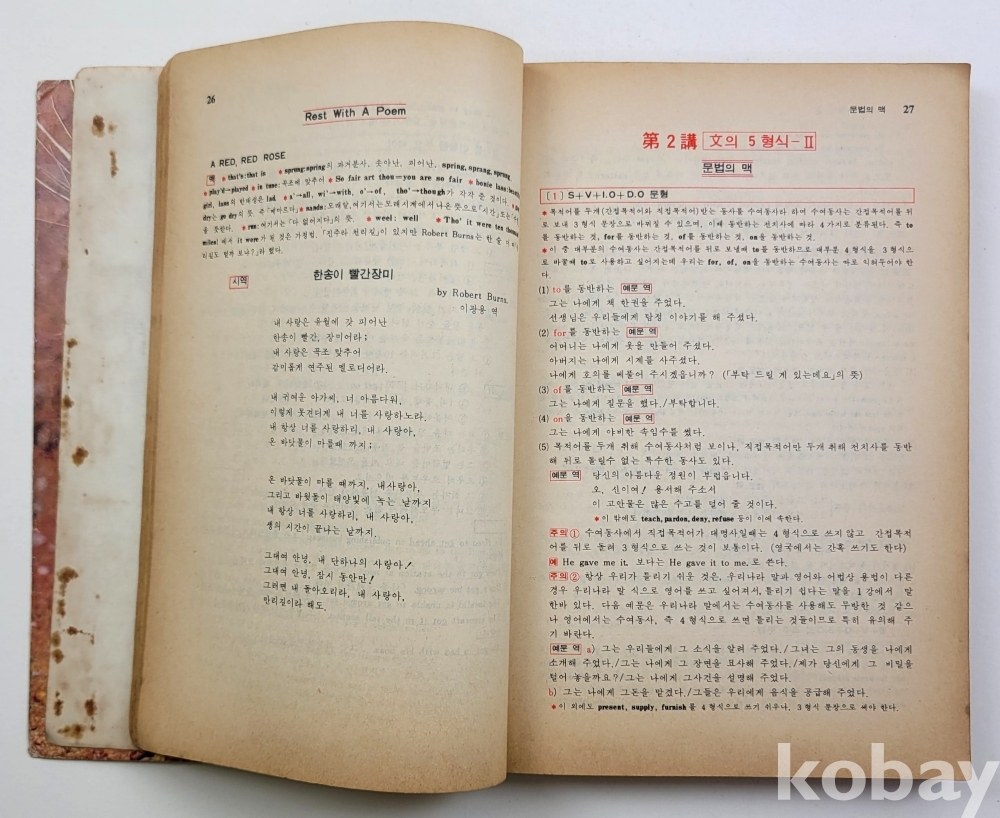 26
Rest With A Poem
A RED, RED ROSE
역 * that's: that is * sprung: spring의 과거분사, 솟아난, 피어난, spring, sprang, sprung,
* play'd=played * in tune: 곡조에 맞추어 * So fair art thou=you are so fair * bonie lass:
girl, lass의 반대성은 lad * a'→all, wi'→with, o'→of, tho'→though가 각각 준 것이다
dry는 go dry의 뜻. 즉 「메마르다」 * sands: 모래알, 여기서는 모래시계에서 나온 뜻으로 「시간」
뜻한다. * run: 여기서는 「다 없어지다」의 뜻. * weel: well * Tho' it were ten thousand
miles」에서 it were가 된 것은 가정법. 「진주라 천리길」이 있지만 Robert Burns는 한 술 더 떠
리길도 멀까 보냐?」라 했다.
시역 한송이 빨간장미
by Robert Burns.
이광용 역
내 사랑은 유월에 갓 피어난
한송이 빨간, 장미어라;
내 사랑은 곡조 맞추어
감미롭게 연주된 멜로디어라.
내 귀여운 아가씨, 너 아름다워,
이렇게 못견디게 내 너를 사랑하노라.
내 항상 너를 사랑하리, 내 사랑아,
온 바닷물이 마를때 까지;
온 바닷물이 마를 때까지, 내사랑아,
그리고 바윗돌이 태양빛에 녹는 날까지
내 항상 너를 사랑하리, 내 사랑아,
생의 시간이 끝나는 날까지.
그대여 안녕, 내 단하나의 사랑아!
그대여 안녕, 잠시 동안만!
그러면 내 돌아오리라, 내 사랑아,
만리길이라 해도.
문법의 맥 27
第 2 講 文의 5 형식-II
문법의 맥
[1] S+V+I.O+D.O 문형
* 목적어를 두개(간접목적어와 직접목적어)받는 동사를 수여동사라 하며 수여동사는 간접목적어를 뒤
로 보내 3형식 문장으로 바꿔질 수 있으며, 이때 동반하는 전치사에 따라 4가지로 분류된다. 즉 to
를 동반하는 것, for를 동반하는 것, of를 동반하는 것, on을 동반하는 것.
* 이 중 대부분의 수여동사는 간접목적어를 뒤로 보낼때 to를 동반하므로 대부분 4형식을 3형식으
로 바꿀때 to로 사용하고 싶어지는데 우리는 for, of, on을 동반하는 수여동사는 따로 익혀두어야 한
다.
(1) to를 동반하는 예문 역
그는 나에게 책 한권을 주었다.
선생님은 우리들에게 탐정 이야기를 해 주셨다.
(2) for를 동반하는 예문 역
어머니는 나에게 옷을 만들어 주셨다.
아버지는 나에게 시계를 사주셨다.
나에게 호의를 베풀어 주시겠읍니까? (「부탁 드릴 게 있는데요」의 뜻)
(3) of를 동반하는 예문 역
그는 나에게 질문을 했다./부탁합니다.
(4) on을 동반하는 예문 역
그는 나에게 야비한 속임수를 썼다.
(5) 목적어를 두개 취해 수여동사처럼 보이나, 직접목적어만 두개 취해 전치사를 동반
해 뒤로 돌릴수 없는 특수한 동사도 있다.
예문 역 당신의 아름다운 정원이 부럽읍니다.
오, 신이여! 용서해 주소서
이 고안물은 많은 수고를 덜어 줄 것이다.
* 이 밖에도 teach, pardon, deny, refuse 등이 이에 속한다.
주의① 수여동사에서 직접목적어가 대명사일때는 4형식으로 쓰지않고 간접목적
어를 뒤로 돌려 3형식으로 쓰는 것이 보통이다. (영국에서는 간혹 쓰기도 한다)
예 He gave me it. 보다는 He gave it to me.로 쓴다.
주의② 항상 우리가 틀리기 쉬운 것은, 우리나라 말과 영어와 어법상 용법이 다른
경우 우리나라 말 식으로 영어를 쓰고 싶어져서, 틀리기 쉽다는 말을 1강에서 말
한바 있다. 다음 예문은 우리나라 말에서는 수여동사를 사용해도 무방한 것 같으
나 영어에서는 수여동사, 즉 4형식으로 쓰면 틀리는 것들이므로 특히 유의해 주
기 바란다.
예문 역 a) 그는 우리들에게 그 소식을 알려 주었다./그녀는 그의 동생을 나에게
소개해 주었다./그는 나에게 그 장면을 묘사해 주었다./제가 당신에게 그 비밀을
털어 놓을까요?/그는 나에게 그사건을 설명해 주었다.
b) 그는 나에게 그돈을 맡겼다./그들은 우리에게 음식을 공급해 주었다.
* 이 외에도 present, supply, furnish를 4형식으로 쓰기 쉬우나, 3형식 문장으로 써야 한다.
kobay